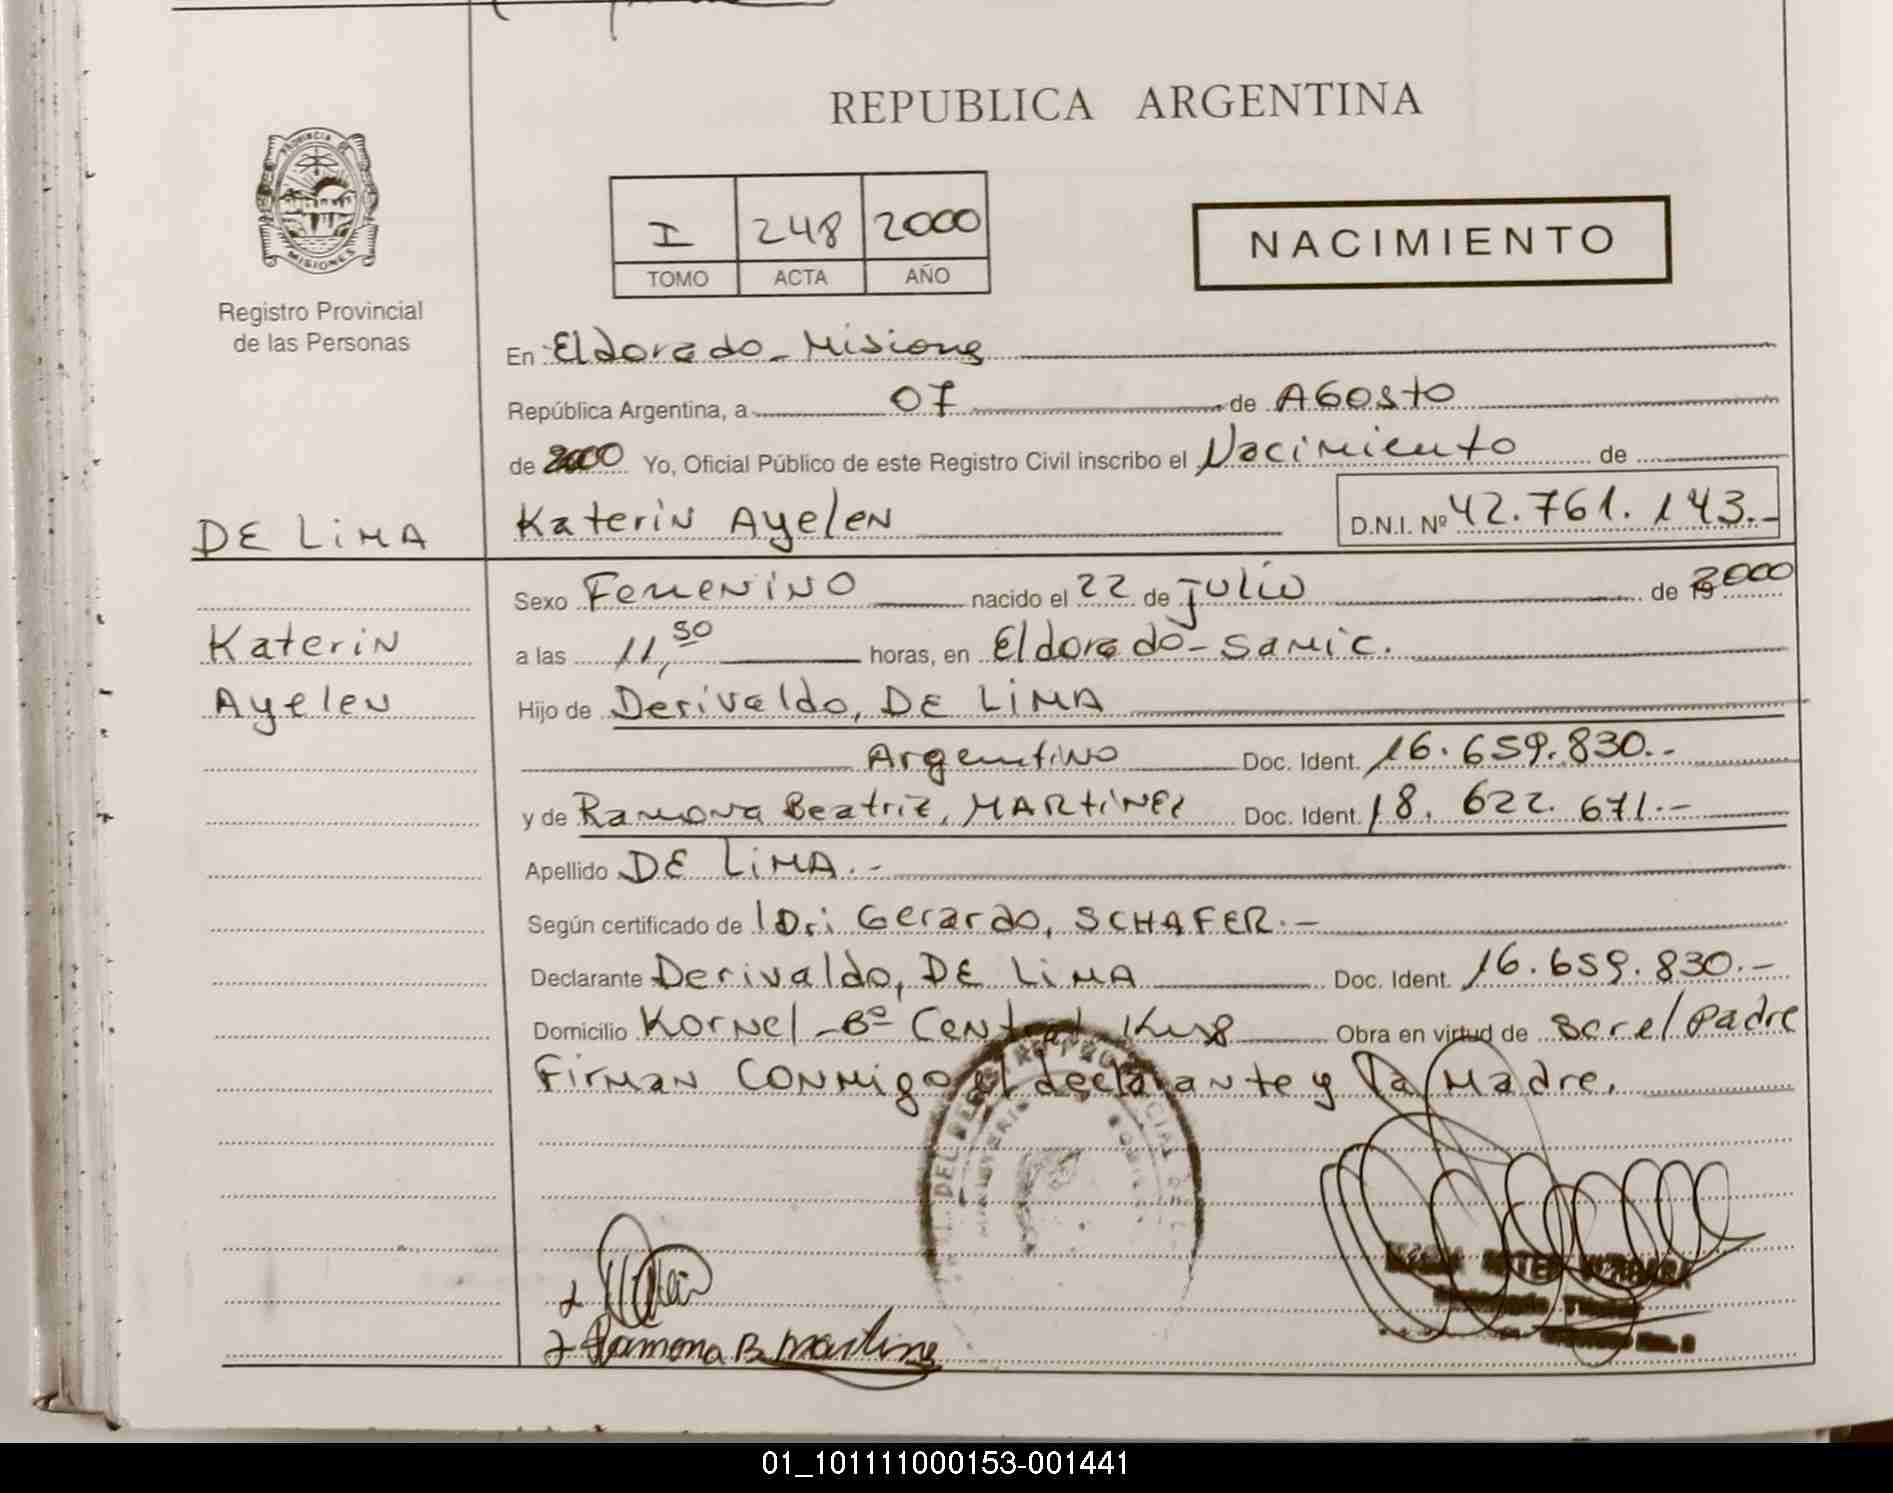 REPUBLICA ARGENTINA
PROVINCIA DE
MISIONES
Registro Provincial
de las Personas
I 248 2000
TOMO ACTA AÑO
NACIMIENTO
En Eldorado - Misiones
República Argentina, a 07 de AGosto
de 2000 Yo, Oficial Público de este Registro Civil inscribo el Nacimiento de
DE LiMA Katerin Ayelen D.N.I. Nº 42.761.143.-
Sexo Femenino nacido el 22 de julio de 2000
Katerin a las 11,50 horas, en Eldorado - Samic.
Ayelen Hijo de Derivaldo, DE LiMA
Argentino Doc. Ident. 16.659.830.-
y de Ramona Beatriz, MARtiNEz Doc. Ident. 18.622.671.-
Apellido DE LiMA.-
Según certificado de Gerardo, SCHAFER.-
Declarante Derivaldo, DE LiMA Doc. Ident. 16.659.830.-
Domicilio Kornel - Bº Central Obra en virtud de Ser el Padre
Firman CONMigo el declarante y la Madre.
Ramona B Martine
01_101111000153-001441